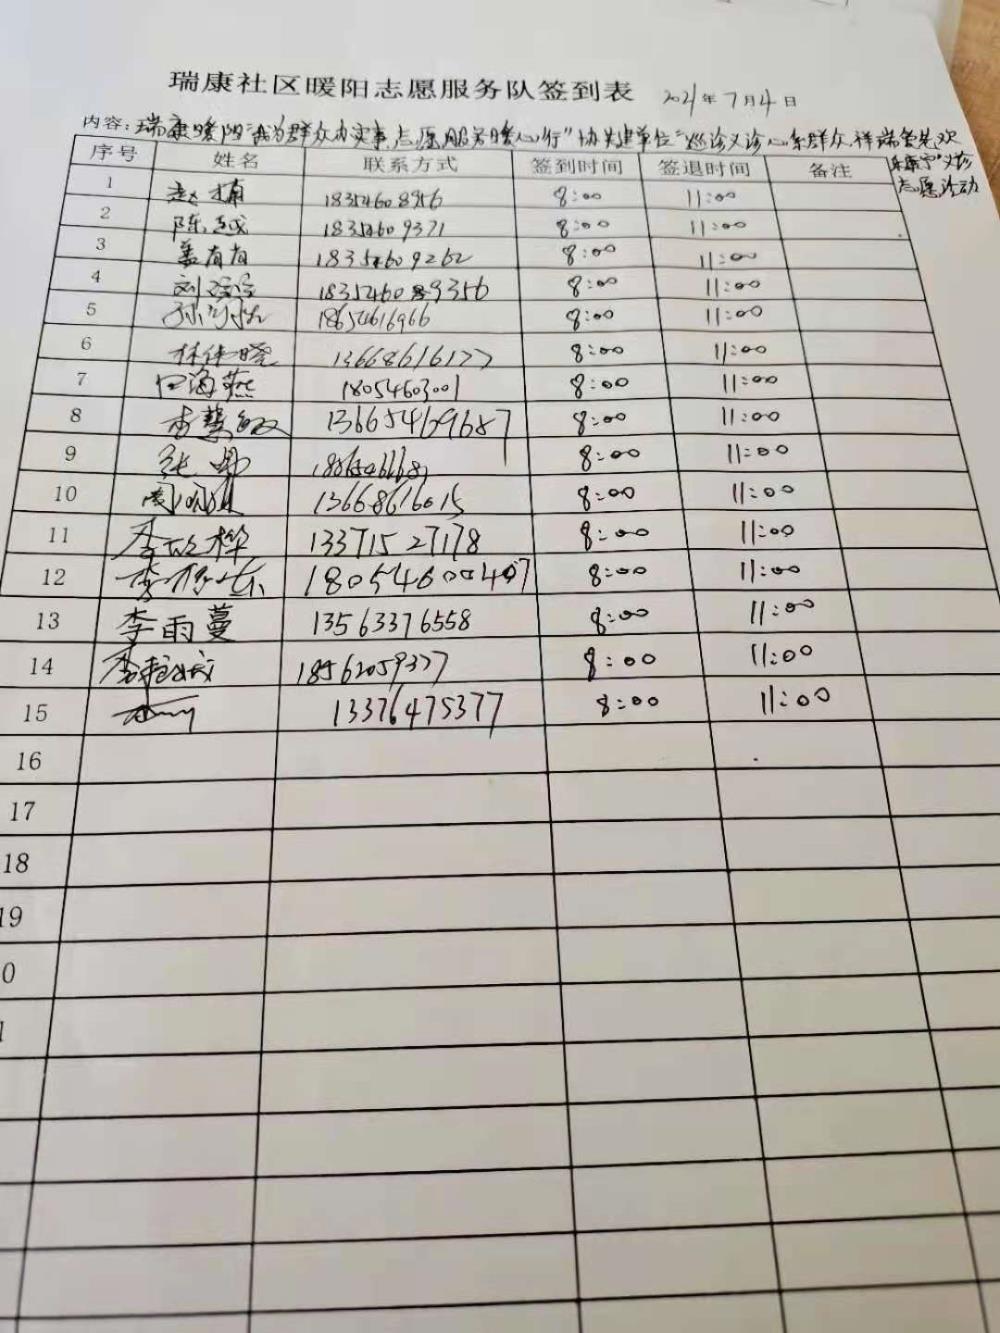 瑞康社区暖阳志愿服务队签到表 2021年7月4日
内容：瑞康暖阳"我为群众办实事，志愿服务暖心行"协共建单位"巡诊义诊心系群众,祥瑞
义诊
志愿活动
序号 姓名 联系方式 签到时间 签退时间 备注
1 赵楠 18354608956 8:00 11:00
2 陈越 18354609371 8:00 11:00
3 姜有有 18354609262 8:00 11:00
4 刘 8:00 11:00
5 孙 18654616966 8:00 11:00
6 林伟晓 13668616177 8:00 11:00
7 田海燕 1805463001 8:00 11:00
8 李慧敏 13665469687 8:00 11:00
9 张 8:00 11:00
10 周 13668616015 8:00 11:00
11 李欣桦 13371527178 8:00 11:00
12 李 8:00 11:00
13 李雨蔓 13563376558 8:00 11:00
14 李 18562059377 8:00 11:00
15 13376475377 8:00 11:00
16
17
18
19
0
1